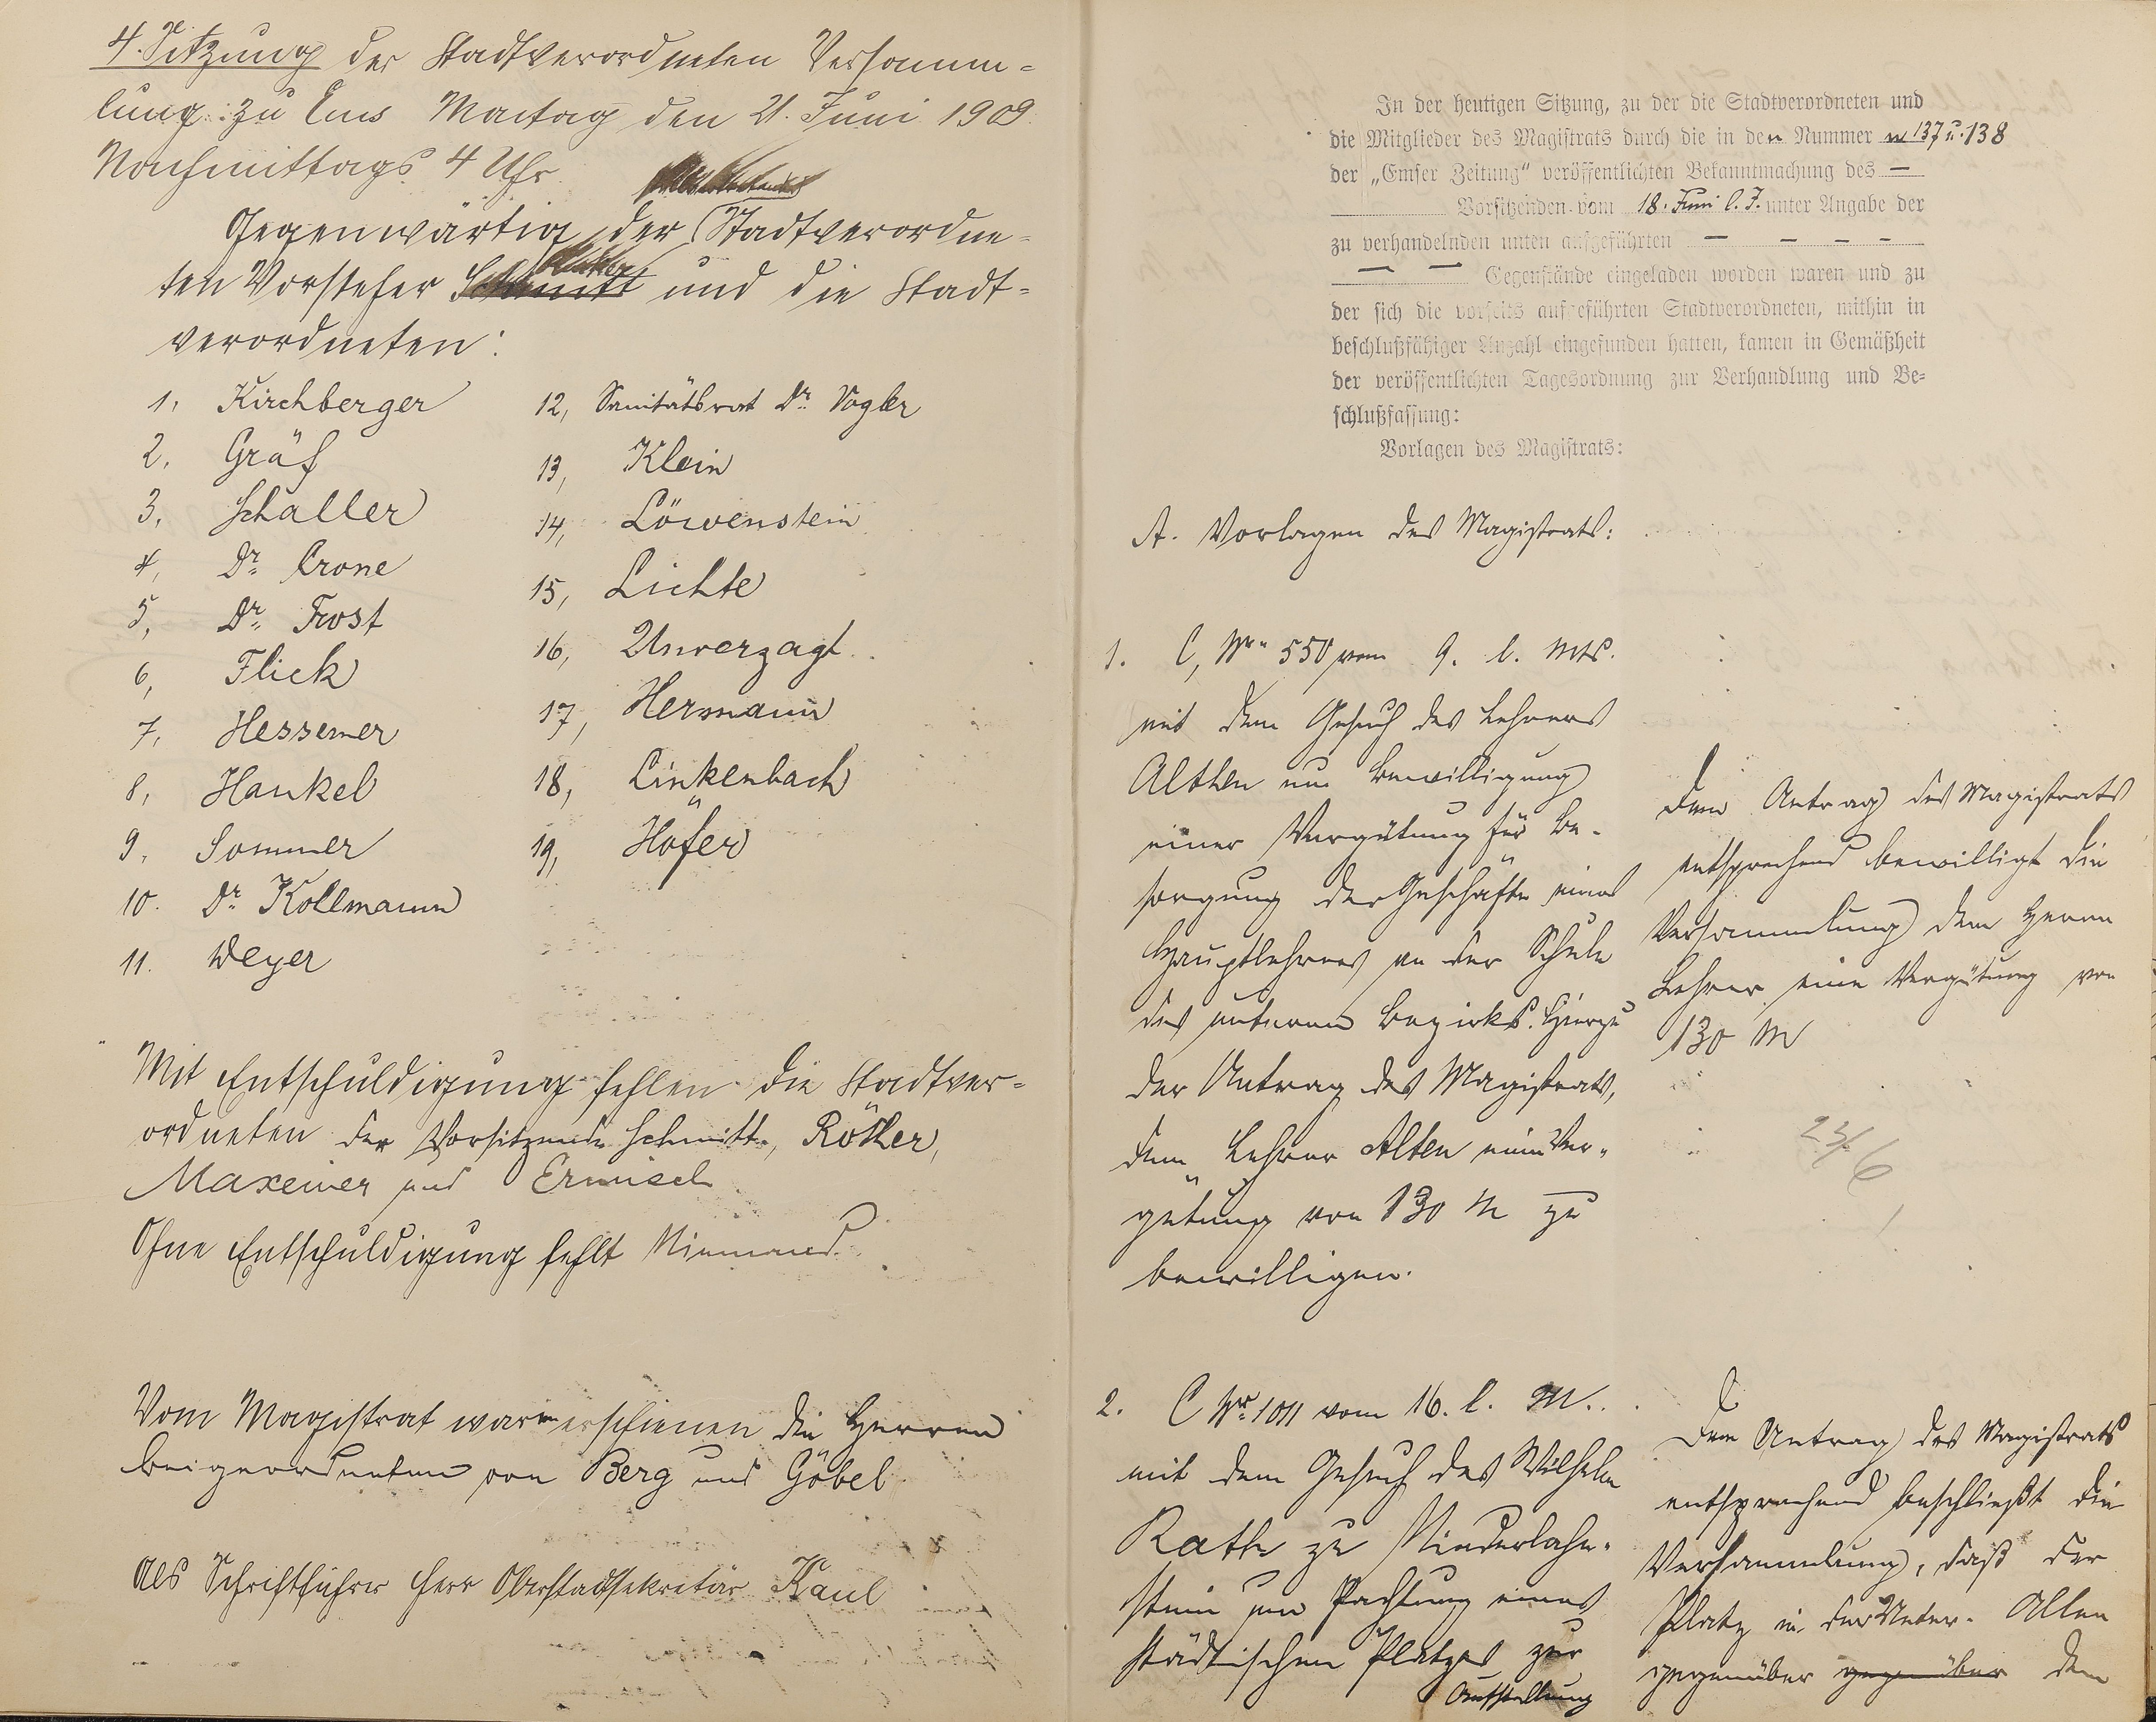 4. Sitzung der Stadtverordneten Versamm-
lung zu Ems Montag den 21. Juni 1909
Nachmittags 4 Uhr
Gegenwärtig der Stadtverordne-
ten Vorsteher und die Stadt-
verordneten:
1, Kirchberger
2, Gräf
3, Schaller
4, Dr. Crone
5, Dr. Frost
6, Flick
7, Hessemer
8, Hankel
9, Sommer
10. Dr. Kollmann
11. Weyer
12, Sanitätsrat Dr. Vogler
13, Klein
14, Löwenstein
15, Lichte
16, Unverzagt
17, Hermann
18, Linkenbach
19, Höfer
Mit Entschuldigung fehlen die Stadtver-
ordneten der Vorsitzende Schmitt, Rößler,
Maxeiner und Ermisch
Ohne Entschuldigung fehlt Niemand
Vom Magistrat waren erschienen die Herren
Beigeordneten von Berg und Göbel
Als Schriftführer Herr Oberstadtsekretär Kaul
In der heutigen Sitzung, zu der die Stadtverordneten und
die Mitglieder des Magistrats durch die in den Nummer n 137 u. 138
der „Emser Zeitung“ veröffentlichten Bekanntmachung des —
Vorsitzenden vom 18. Juni l. J. unter Angabe der
zu verhandelnden unten aufgeführten — — — —
— — Gegenstände eingeladen worden waren und zu
der sich die vorseits aufgeführten Stadtverordneten, mithin in
beschlußfähiger Anzahl eingefunden hatten, kamen in Gemäßheit
der veröffentlichten Tagesordnung zur Verhandlung und Be-
schlußfassung:
Vorlagen des Magistrats:
A. Vorlagen des Magistrats:
1. C, Nr. 550 vom 9. l. Mts.
mit dem Gesuch des Lehrers
Althen um Bewilligung
einer Vergütung für Be-
sorgung der Geschäfte eines
Hauptlehrers an der Schule
des unteren Bezirks. Hierzu
der Antrag des Magistrats,
dem Lehrer Alten eine Ver-
gütung von 130 M zu
bewilligen.
Dem Antrag des Magistrats
entsprechend bewilligt die
Versammlung dem Herrn
Lehrer eine Vergütung von
130 M
23/6
2. C Nr. 1011 vom 16. l. M.
mit dem Gesuch des Wilhelm
Rath zu Niederlahn-
stein um Pachtung eines
städtischen Platzes zur
Aufstellung
Dem Antrag des Magistrats
entsprechend beschließt die
Versammlung, daß der
Platz in der Unter- Allee
gegenüber gegenüber dem